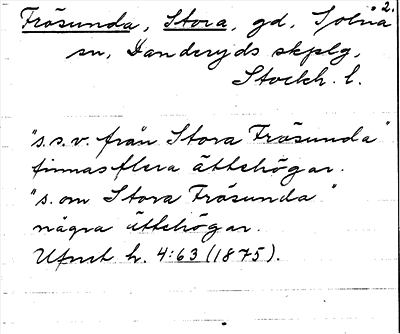 Frösunda, Stora, gd, Solna 2.
sn, Danderyds skplg,
Stockh. l.
"s.s.v. från Stora Frösunda"
finnas flera ättehögar.
"s. om Stora Frösunda"
några ättehögar.
Ufmt h. 4:63 (1875).